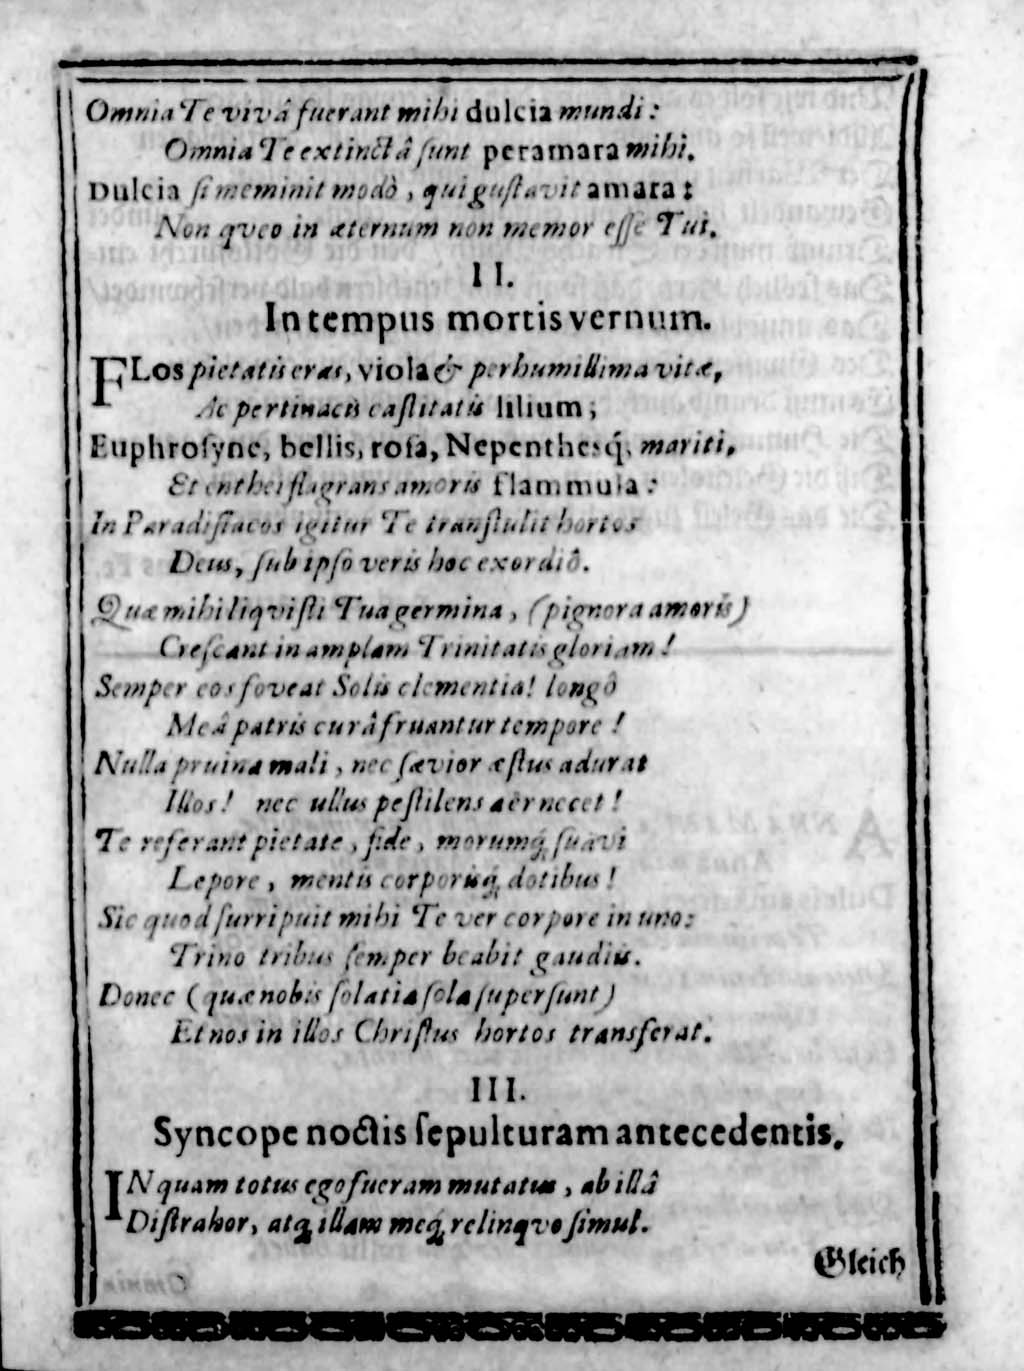 Omnia Te vivâ fuerant mihi dulcia mundi:
Omnia Te extinctâ ſunt peramara mihi.
Dulcia ſi meminit modò, qui guſtavit amara:
Non qveo in æternum non memor eſſe Tui.
II.
In tempus mortis vernum.
FLos pietatis eras, viola & perhumillima vitæ,
Ac pertinacis caſtitatis lilium;
Euphroſyne, bellis, roſa, Nepenthesq́; mariti,
Et enthei flagrans amoris flammula:
In Paradiſiacos igitur Te tranſtulit hortos
Deus, ſub ipſo veris hoc exordiô.
Quæ mihi liqviſti Tua germina, (pignora amoris)
Creſcant in amplam Trinitatis gloriam!
Semper eos foveat Solis clementia! longô
Meâ patris curâ fruantur tempore!
Nulla pruina mali, nec ſævior æſtus adurat
Illos! nec ullus peſtilens aër necet!
Te referant pietate, fide, morumq́; ſuavi
Lepore, mentis corporisq́; dotibus!
Sic quod ſurripuit mihi Te ver corpore in uno:
Trino tribus ſemper beabit gaudiis.
Donec (quæ nobis ſolatia ſola ſuperſunt)
Et nos in illos Chriſtus hortos transferat.
III.
Syncope noctis ſepulturam antecedentis.
IN quam totus ego fueram mutatus, ab illâ
Diſtrahor, atq́; illam meq́; relinqvo ſimul.
Gleich